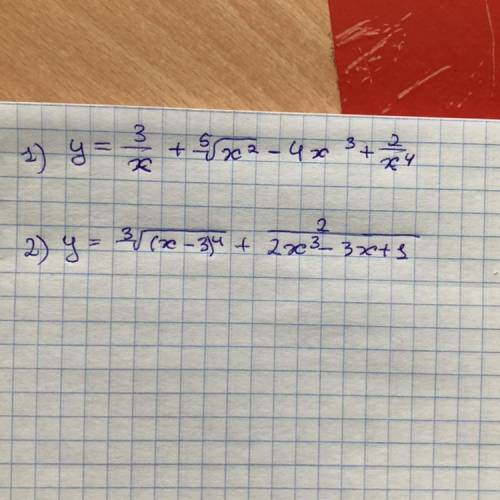 1) y = 3/x + ⁵√x² - 4x³ + 2/x⁴
2) y = ³√(x-3)⁴ + 2/(2x³ - 3x + 1)